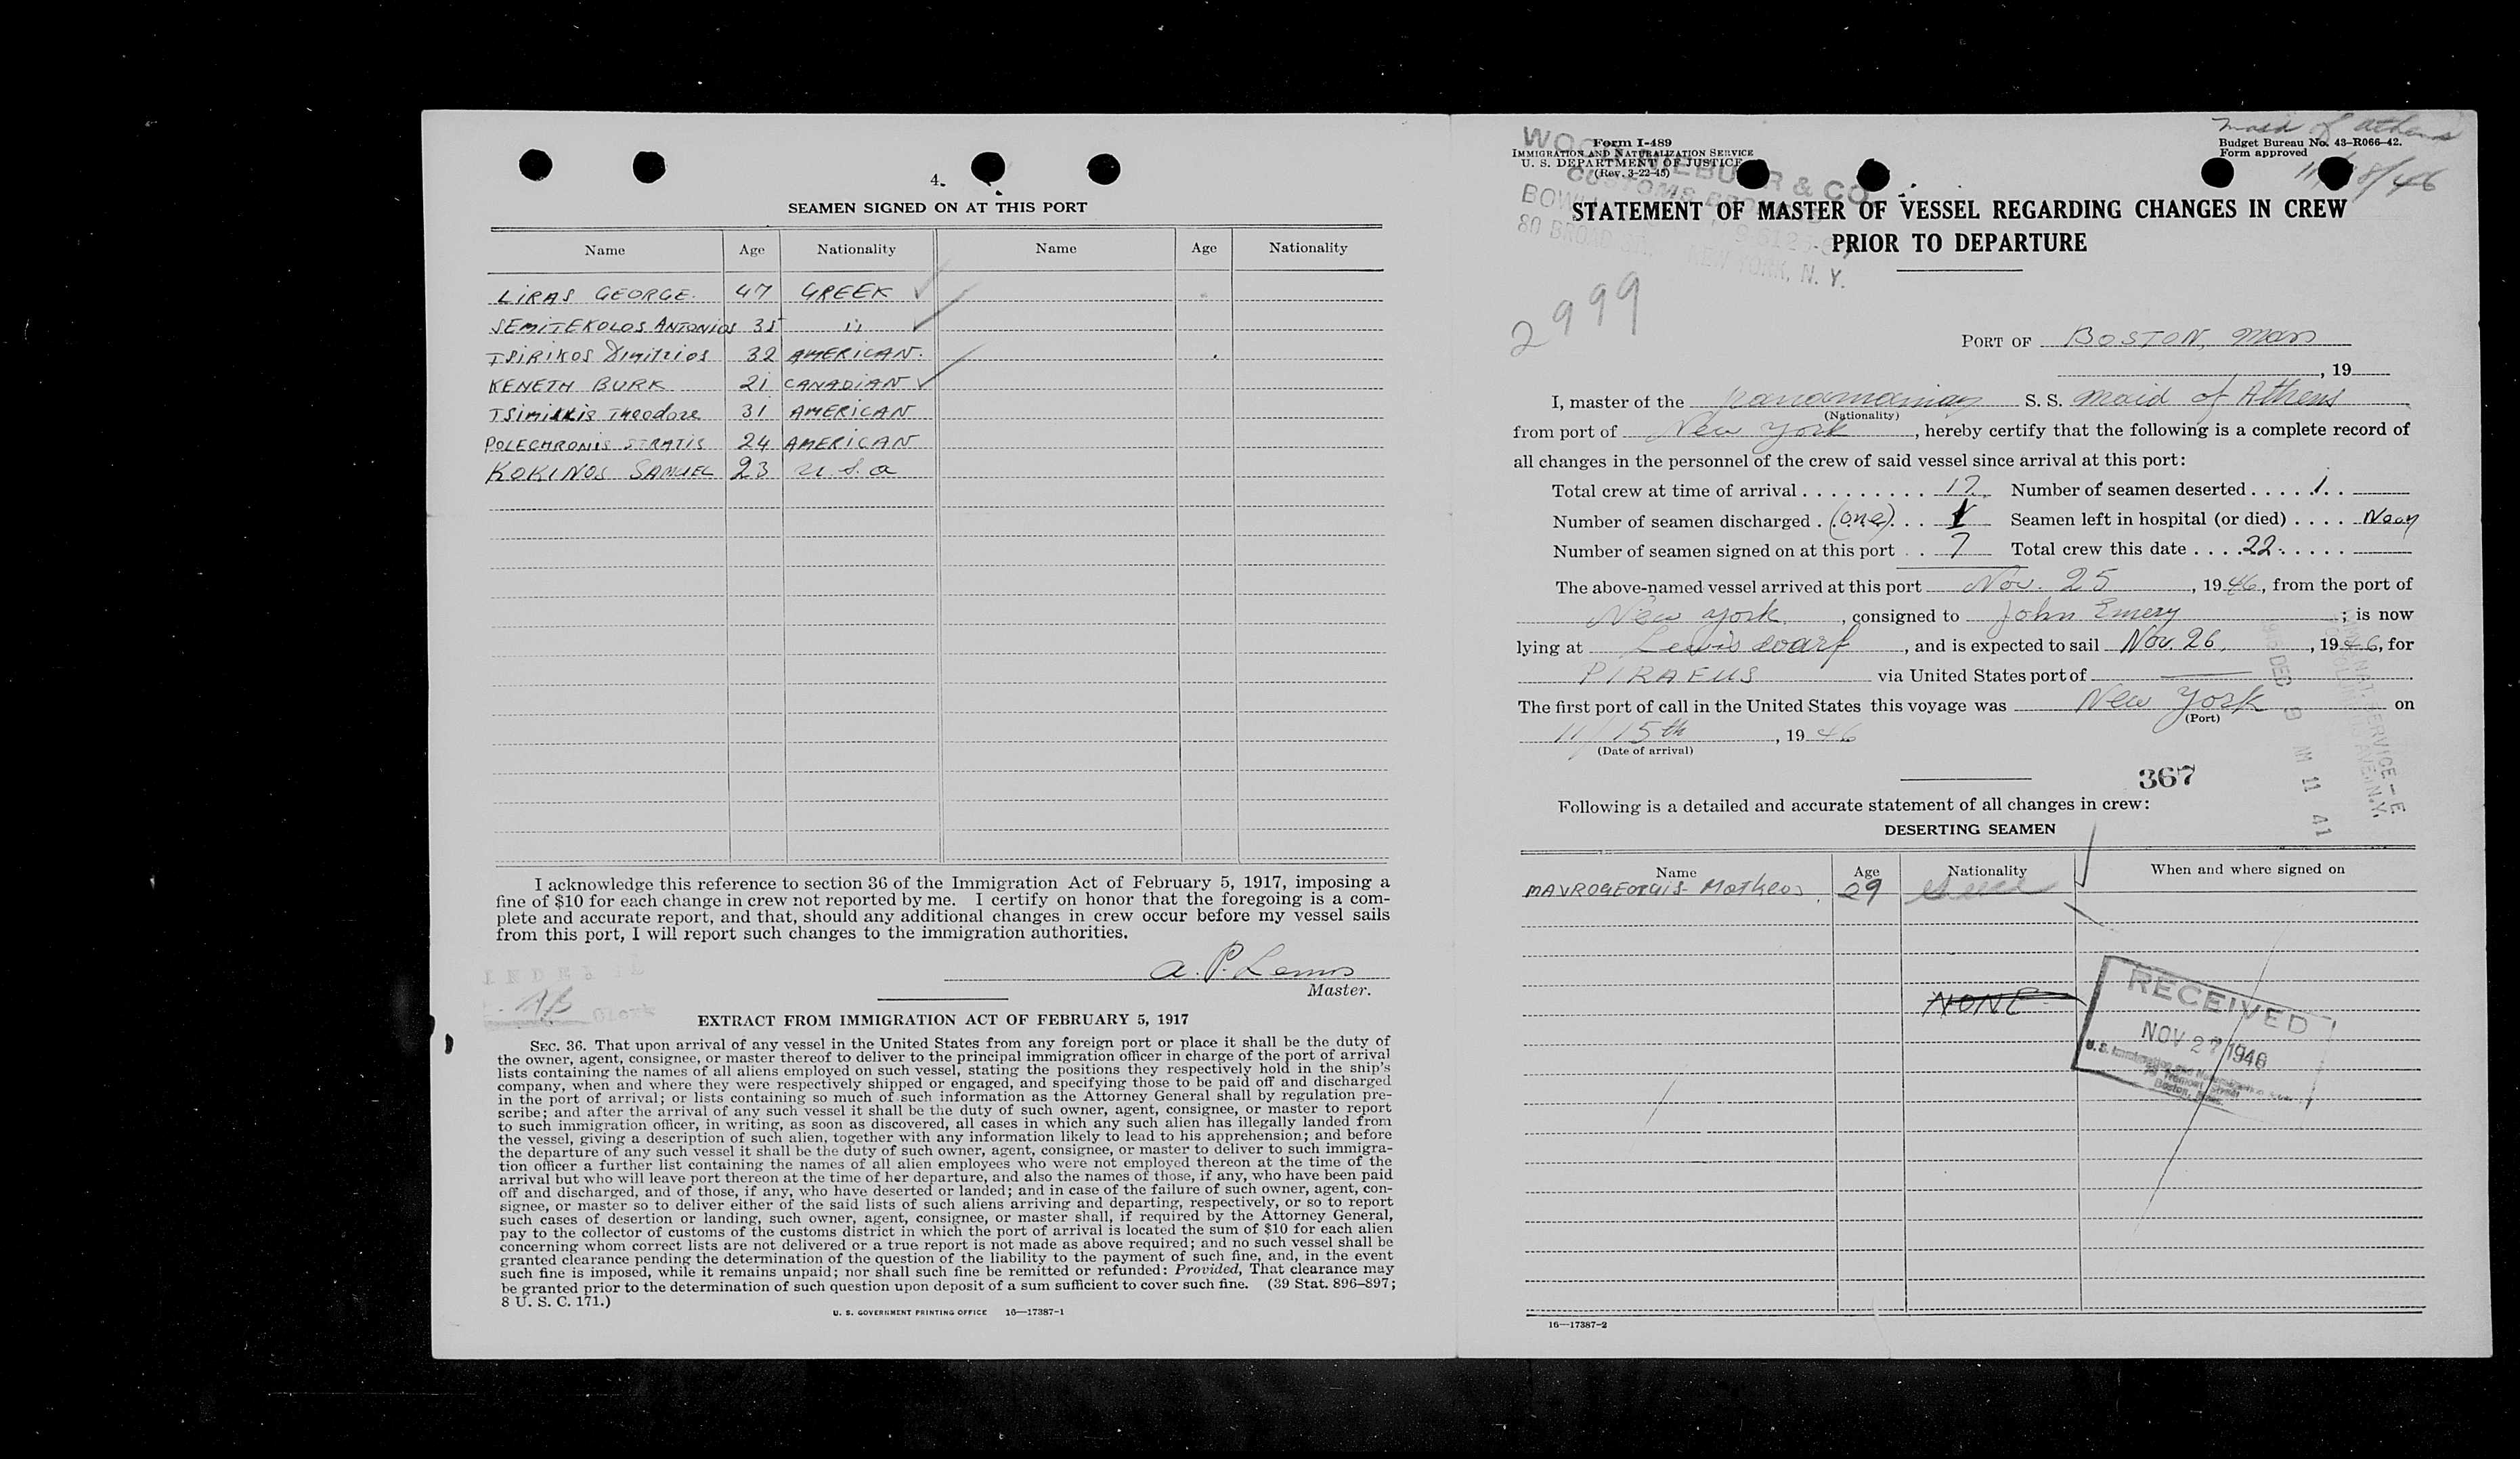 4.
SEAMEN SIGNED ON AT THIS PORT
Name Age Nationality Name Age Nationality
LIRAS GEORGE. 47 GREEK
SEMITEKOLOS ANTONIOS 35 "
TSIRIKOS Dimitrios 32 AMERICAN.
KENETH BURK 21 CANADIAN
TSIMIKKIS Theodore 31 AMERICAN
POLECHRONIS STRATIS 24 AMERICAN
KOKINOS SAMUEL 23 U.S.a
I acknowledge this reference to section 36 of the Immigration Act of February 5, 1917, imposing a
fine of $10 for each change in crew not reported by me. I certify on honor that the foregoing is a com-
plete and accurate report, and that, should any additional changes in crew occur before my vessel sails
from this port, I will report such changes to the immigration authorities.
A. P. Lemos
Master.
Clerk
EXTRACT FROM IMMIGRATION ACT OF FEBRUARY 5, 1917
SEC. 36. That upon arrival of any vessel in the United States from any foreign port or place it shall be the duty of
the owner, agent, consignee, or master thereof to deliver to the principal immigration officer in charge of the port of arrival
lists containing the names of all aliens employed on such vessel, stating the positions they respectively hold in the ship's
company, when and where they were respectively shipped or engaged, and specifying those to be paid off and discharged
in the port of arrival; or lists containing so much of such information as the Attorney General shall by regulation pre-
scribe; and after the arrival of any such vessel it shall be the duty of such owner, agent, consignee, or master to report
to such immigration officer, in writing, as soon as discovered, all cases in which any such alien has illegally landed from
the vessel, giving a description of such alien, together with any information likely to lead to his apprehension; and before
the departure of any such vessel it shall be the duty of such owner, agent, consignee, or master to deliver to such immigra-
tion officer a further list containing the names of all alien employees who were not employed thereon at the time of the
arrival but who will leave port thereon at the time of her departure, and also the names of those, if any, who have been paid
off and discharged, and of those, if any, who have deserted or landed; and in case of the failure of such owner, agent, con-
signee, or master so to deliver either of the said lists of such aliens arriving and departing, respectively, or so to report
such cases of desertion or landing, such owner, agent, consignee, or master shall, if required by the Attorney General,
pay to the collector of customs of the customs district in which the port of arrival is located the sum of $10 for each alien
concerning whom correct lists are not delivered or a true report is not made as above required; and no such vessel shall be
granted clearance pending the determination of the question of the liability to the payment of such fine, and, in the event
such fine is imposed, while it remains unpaid; nor shall such fine be remitted or refunded: Provided, That clearance may
be granted prior to the determination of such question upon deposit of a sum sufficient to cover such fine. (39 Stat. 896–897;
8 U. S. C. 171.)
U. S. GOVERNMENT PRINTING OFFICE 16—17387-1
Maid of Athens
Form I-489
IMMIGRATION AND NATURALIZATION SERVICE
U. S. DEPARTMENT OF JUSTICE
(Rev. 3-22-45)
Budget Bureau No. 43-R066-42.
Form approved
& CO
CUSTOMS
80 BROAD NEW YORK, N. Y.
STATEMENT OF MASTER OF VESSEL REGARDING CHANGES IN CREW
PRIOR TO DEPARTURE
2999
PORT OF BOSTON, Mass
, 19
I, master of the Panamanian S. S. Maid of Athens
(Nationality)
from port of New York, hereby certify that the following is a complete record of
all changes in the personnel of the crew of said vessel since arrival at this port:
Total crew at time of arrival . . . . . . . . . 17 Number of seamen deserted . . . . 1 . .
Number of seamen discharged . (one) . . . 1 Seamen left in hospital (or died) . . . .
Number of seamen signed on at this port . . 7 Total crew this date . . . . 22 . . . . .
The above-named vessel arrived at this port Nov. 25, 1946, from the port of
New York, consigned to John Emery; is now
lying at Lewis warf, and is expected to sail Nov. 26, 1946, for
PIRAEUS via United States port of —
The first port of call in the United States this voyage was New York on
(Port)
11/15th, 1946
(Date of arrival)
367
DEC 9 AM 11 41
Following is a detailed and accurate statement of all changes in crew:
DESERTING SEAMEN
Name Age Nationality When and where signed on
MAVROGEORGIS Matheos 29
NONE
RECEIVED
NOV 27 1946
U. S. Immigration and Naturalization
Boston, Mass.
16—17387-2